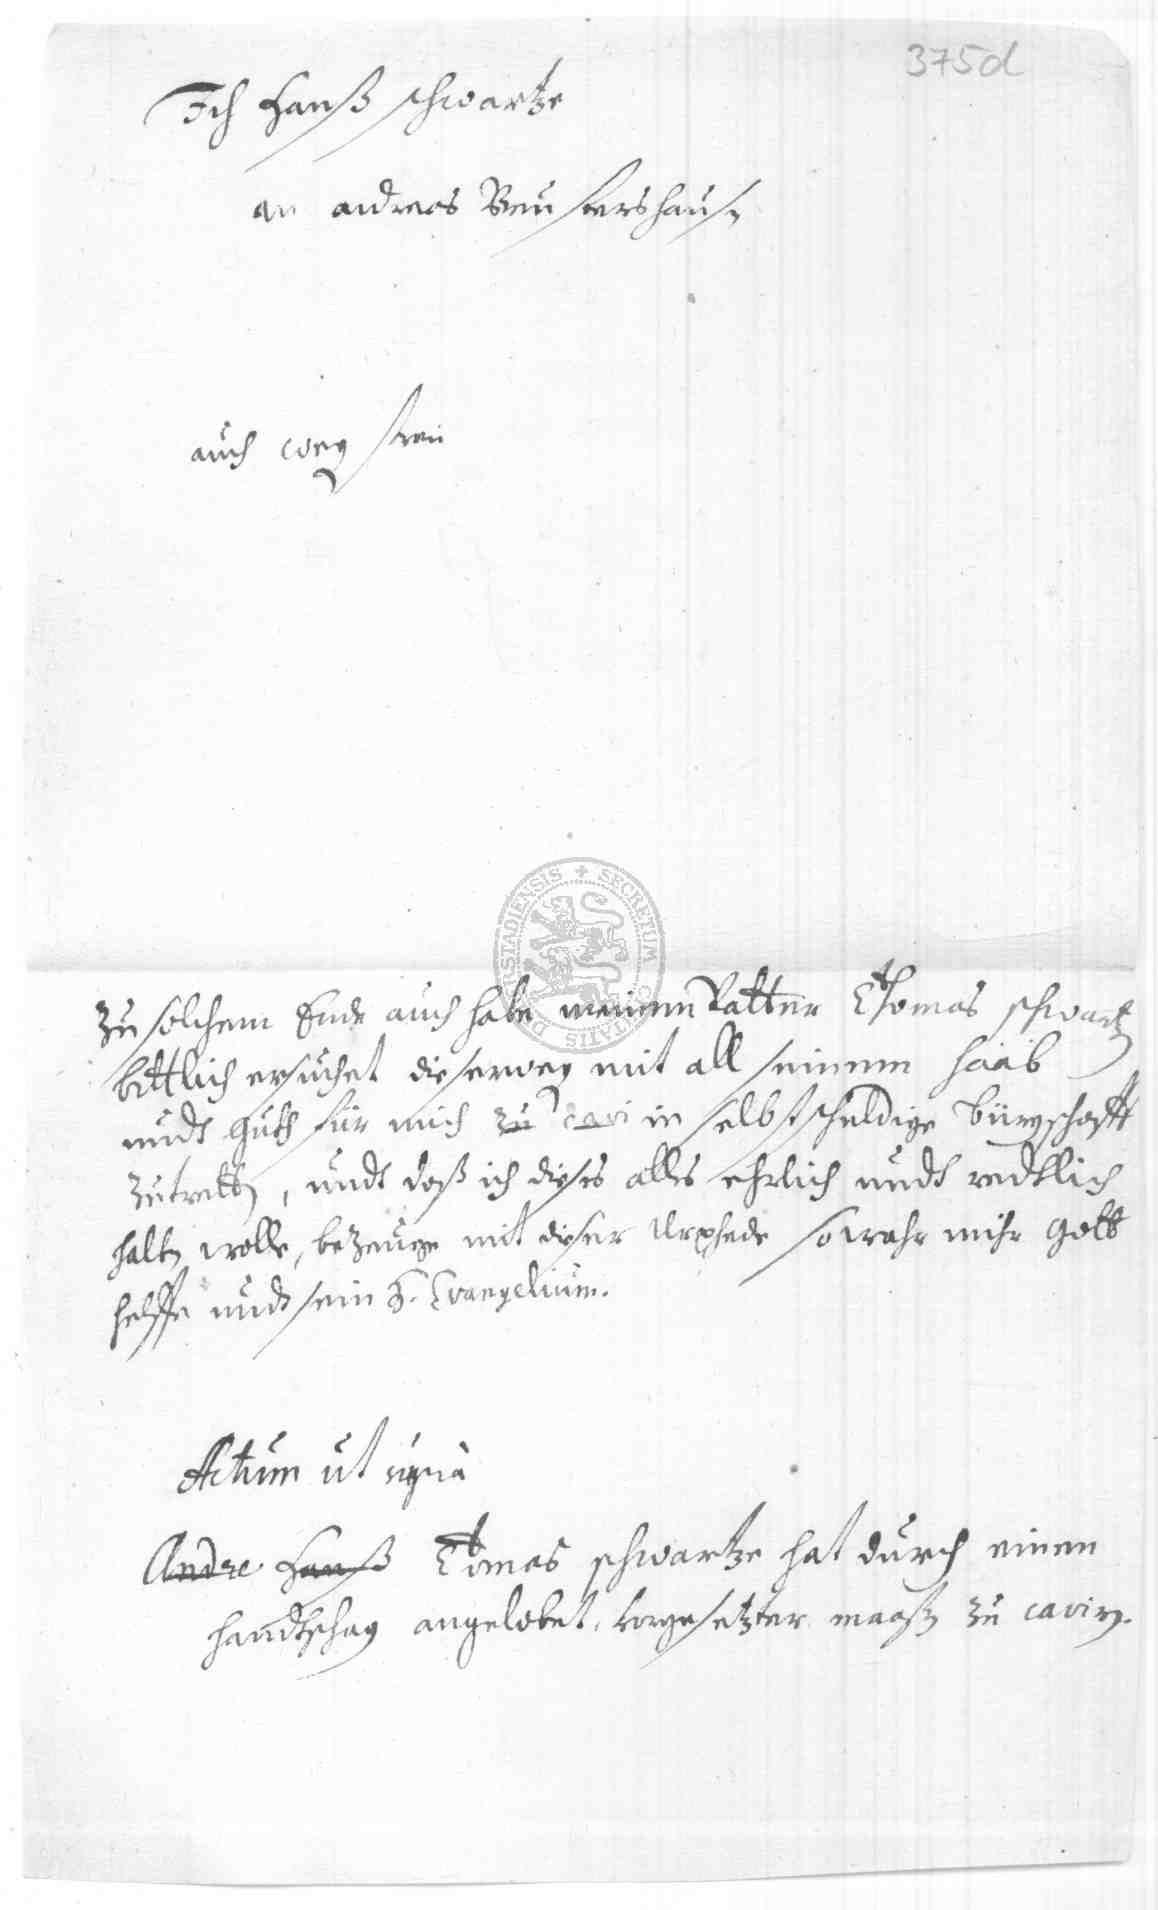 375d
Ich Hanß schwartze
an andreas Beustershause
auch weg
zu solchem Ende auch habe meinen Vatter Thomas schwartz
bittlich ersuchet dieserweg mit all seinem haab
undt guth für mich zu cavi in selbstschuldige bürgschafft
zutretten, undt daß ich dieses alles ehrlich undt redtlich
halten wolle, bezeuge mit dieser Urphede so wahr mihr Gott
helffe undt sein H. Evangelium.
Actum ut suprà
Andre Hanß Tomas schwartze hat durch einen
handtschag angelobet, vorgesetzter maaßen zu caviren.
SECRETUM